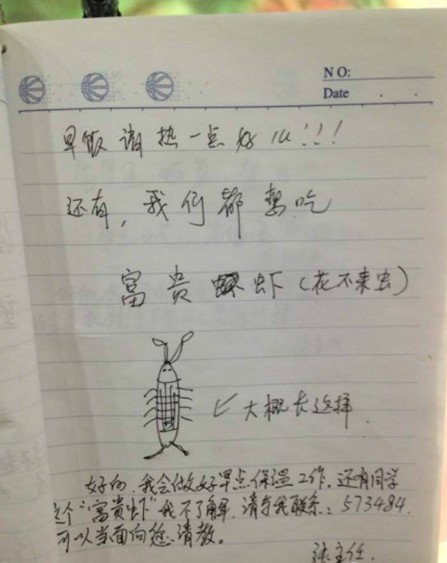 NO:
Date
早饭调热一点好么!!!
还有，我们都想吃
富贵虾（花不来虫）
大概长这样
好的，我会做好早点保温工作，还有同学
这个“富贵虾”我不了解，请与我联系：573484.
可以当面向您请教。
张主任.